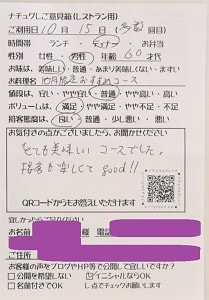 ナチュグレご意見箱(レストラン用)
ご利用日 10月15日( 回目)
時間帯 ランチ・ディナー・お弁当
性別 女性・男性 年齢 60才代
お味は 美味しい・普通・あまり美味しくない・まずい
お料理名 10月限定おすすめコース
値段は 安い・やや安い・普通・やや高い・高い
ボリュームは 満足・やや満足・やや不足・不足
接客態度は 良い・普通・少し悪い・悪い
お気付きの点がございましたら、お聞かせください
とても美味しいコースでした。
接客が楽しくて good!!
QRコードからもお答えいただけます
宜しかったらご記入ください
お名前 様 電話
ご住所
お客様の声をブログやHP等で公開して宜しいですか?
公開を希望しない イニシャルならOK
名前付きでOK し点でチェックお願いします